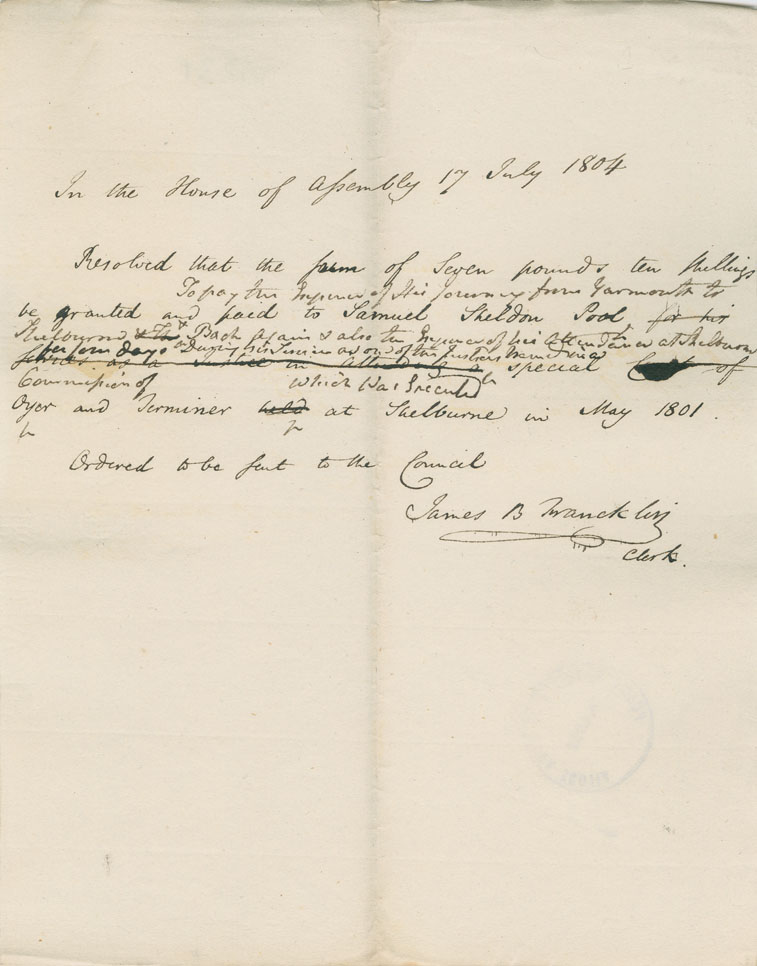 In the House of Assembly 17 July 1804
Resolved that the sum of Seven pounds ten Shillings
To pay the Expence of His Journey from Yarmouth to
be granted and paid to Samuel Sheldon Pool for his
Shelburne & Back again & also the Expence of his Attendance at Shelburne
for four days During his Service as one of the Justices named in a
Service as a Justice in attending a special of
Commission of which was Executed
Oyer and Terminer held at Shelburne in May 1801.
Ordered to be sent to the Council
James B Francklin
Clerk.